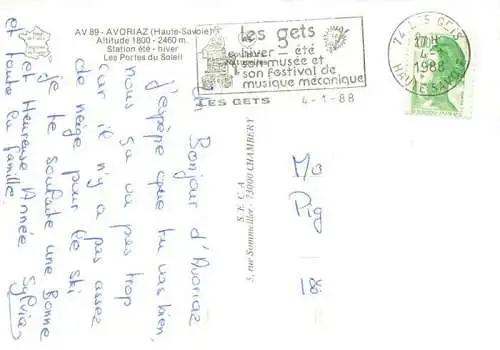 AV 89 - AVORIAZ (Haute-Savoie)
Altitude 1800 - 2460 m.
Station été - hiver
Les Portes du Soleil
les gets
hiver - été
son musée et
son festival de
musique mécanique
LES GETS 4-1-88
74 LES GETS
17 H
4-1
1988
HAUTE SAVOIE
Un Bonjour d'Avoriaz
j'espère que tu vas bien.
nous ça va pas trop
car il n'y a pas assez
de neige pour le ski
je te souhaite une Bonne
et Heureuse Année
et toute la famille.
Sylvia
S.E.C.A
5, rue Sommeiller - 73000 CHAMBERY
Pig